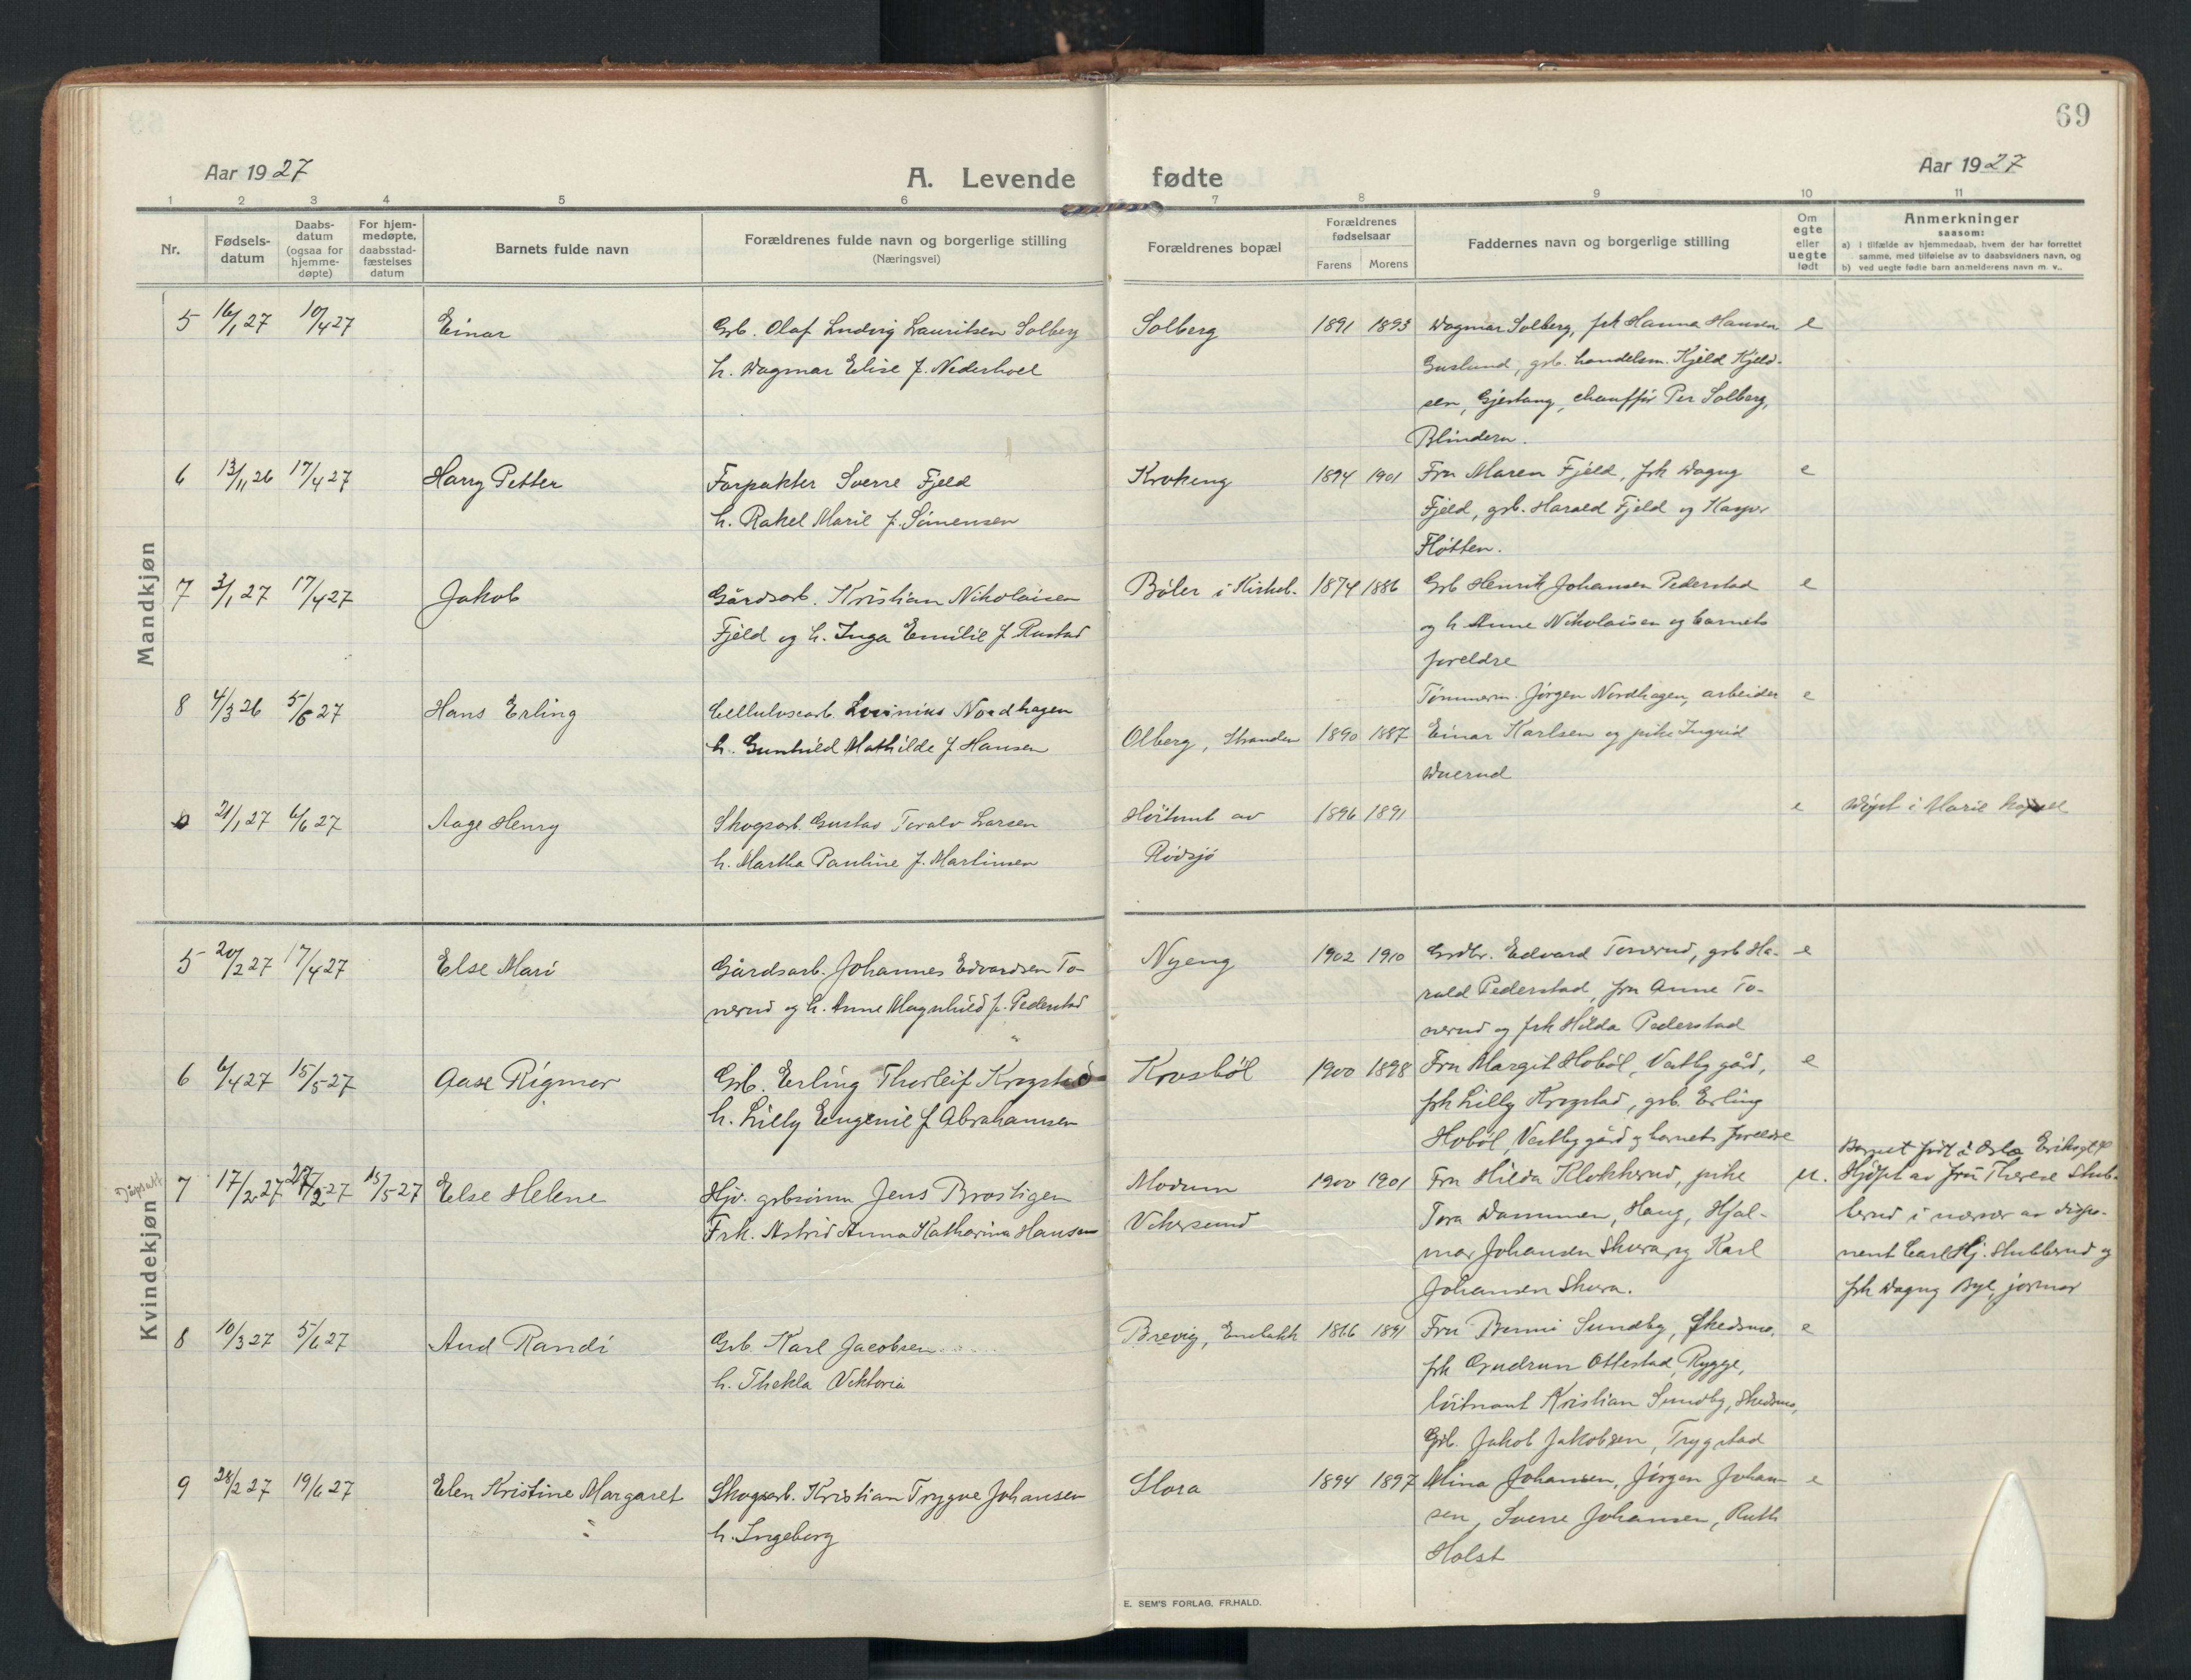 69
Aar 1927
A. Levende fødte
Aar 1927
1 2 3 4 5 6 7 8 9 10 11
Nr.
Fødsels-
datum
Daabs-
datum
(ogsaa for
hjemme-
døpte)
For hjem-
medøpte,
daabsstad-
fæstelses
datum
Barnets fulde navn
Forældrenes fulde navn og borgerlige stilling
(Næringsvei)
Forældrenes bopæl
Forældrenes
fødselsaar
Farens Morens
Faddernes navn og borgerlige stilling
Om
egte
eller
uegte
født
Anmerkninger
saasom:
a) i tilfælde av hjemmedaab, hvem der har forrettet
samme, med tilføielse av to daabsvidners navn, og
b) ved uegte fødte barn anmelderens navn m. v..
Mandkjøn
5 16/1 27 10/4 27 Einar Grb. Olaf Ludvig Lauritsen Solberg Solberg 1891 1893 Dagmar Solberg, frk Hanna Hansen e
h. Dagmar Elise f. Nederhoel Guslund, grb. handelsm. Kjeld Kjeld-
sen, Gjestang, chauffør Per Solberg,
Blindern.
6 13/11 26 17/4 27 Harry Petter Forpakter Sverre Fjeld Krokeng 1894 1901 Fru Maren Fjeld, frk Dagny e
h. Rakel Marie f. Simensen Fjeld, grb. Harald Fjeld og Kasper
Fløtten.
7 3/1 27 17/4 27 Jakob Gårdsarb. Kristian Nikolaisen Bøler i Kirkeb. 1874 1886 Grb Henrik Johansen Pederstad e
Fjeld og h. Inga Emilie f Rustad og h Anne Nikolaisen og barnets
foreldre
8 4/3 26 5/6 27 Hans Erling Cellulosearb. Nordhagen Tømmerm. Jørgen Nordhagen, arbeider e
h. Gunhild Mathilde f Hansen Olberg, Stranden 1890 1887 Einar Karlsen og pike Ingrid
Duerud
21/1 27 6/6 27 Aage Henry Skogsarb. Gustav Toralv Larsen av 1896 1891 e Døpt i Marie kapell
h. Martha Pauline f. Martinsen Rødsjø
Kvindekjøn
5 20/2 27 17/4 27 Else Mari Gårdsarb. Johannes Edvardsen To- Nyeng 1902 1910 Grdbr. Edvard Tonerud, grb Ha- e
nerud og h. Anne Magnhild f. Pederstad rald Pederstad, fru Anne To-
nerud og frk Hilda Pederstad
6 6/4 27 15/5 27 Aase Rigmor Grb. Erling Thorleif Krogstad Krosbøl 1900 1898 Fru Margit Hobøl, Vestby gård, e
h. Lilly Eugenie f Abrahamsen frk Lilly Krogstad, grb. Erling
Hobøl, Vestby gård og barnets foreldre
Barnet født i Oslo
7 17/2 27 27/2 27 15/5 27 Else Helene Hjv. grbsønn Jens Brostigen Modum 1900 1901 Fru Hilda Klokkerud, pike u. Hjdpt av fru Therese Stub-
Frk. Astrid Anna Katharina Hansen Vikersund Tora Dammen, Haug, Hjal- berud i nærvær av dispo-
mar Johansen Skura og Karl nent Carl Hj. Stubberud og
Johansen Skura. frk Dagny jormor
8 10/3 27 5/6 27 Aud Randi Grb. Karl Jacobsen Brevig, Enebakk 1886 1891 Fru Sundby, Skedsmo, e
h. Thekla Viktoria frk Gudrun Ottestad Rygge,
løitnant Kristian Sundby, Skedsmo,
Grb. Jakob Jakobsen, Trygstad
9 28/2 27 19/6 27 Elen Kristine Margaret Skogsarb. Kristian Trygve Johansen Slora 1894 1897 Mina Johansen, Jørgen Johan- e
h. Ingeborg sen, Sverre Johansen, Ruth
Holst
E. SEM'S FORLAG, FR.HALD.